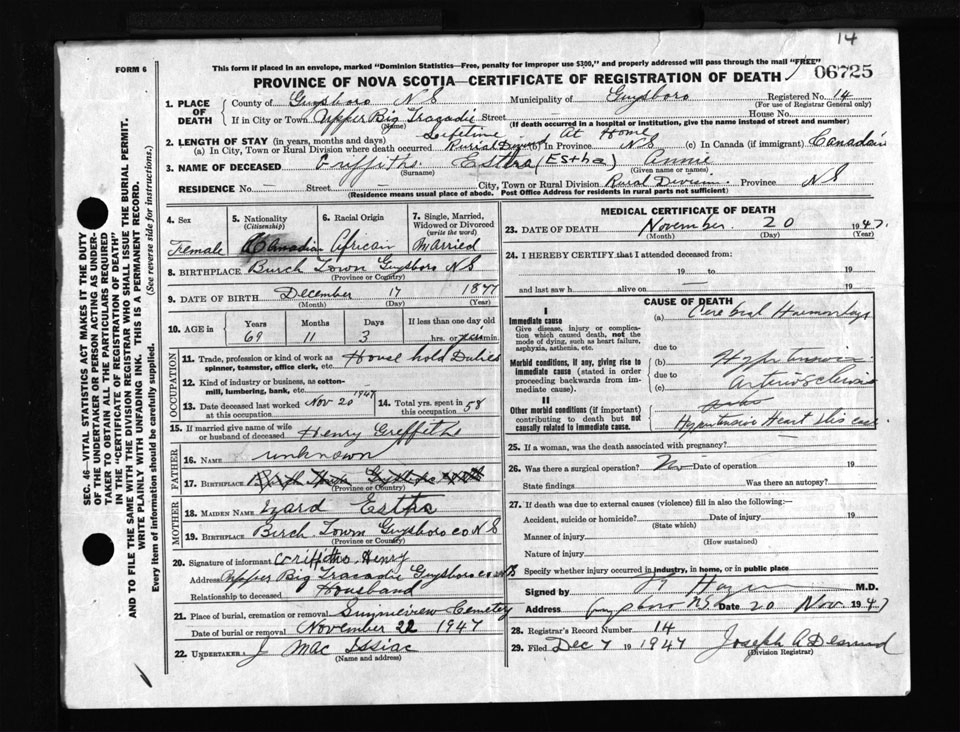 14
FORM 6
This form if placed in an envelope, marked "Dominion Statistics—Free, penalty for improper use $300," and properly addressed will pass through the mail "FREE"
PROVINCE OF NOVA SCOTIA—CERTIFICATE OF REGISTRATION OF DEATH 06725
SEC. 46—VITAL STATISTICS ACT MAKES IT THE DUTY
OF THE UNDERTAKER OR PERSON ACTING AS UNDER-
TAKER TO OBTAIN ALL THE PARTICULARS REQUIRED
IN THE "CERTIFICATE OF REGISTRATION OF DEATH"
AND TO FILE THE SAME WITH THE DIVISION REGISTRAR WHO SHALL ISSUE THE BURIAL PERMIT.
WRITE PLAINLY WITH UNFADING INK. THIS IS A PERMANENT RECORD.
Every item of information should be carefully supplied. (See reverse side for instructions.)
1. PLACE OF DEATH
County of Guysboro N S Municipality of Guysboro Registered No. 14
(For use of Registrar General only)
If in City or Town Upper Big Tracadie Street House No.
(Name) (If death occurred in a hospital or institution, give the name instead of street and number)
2. LENGTH OF STAY (in years, months and days) Lifetime At Home
(a) In City, Town or Rural Division where death occurred (b) In Province N S (c) In Canada (if immigrant) Canadain
3. NAME OF DECEASED Griffiths. Estha (Estha) Annie
(Surname) (Given name or names)
RESIDENCE No. — Street — City, Town or Rural Division Rural Division. Province N S
(Residence means usual place of abode. Post Office Address for residents in rural parts not sufficient)
4. Sex 5. Nationality (Citizenship) 6. Racial Origin 7. Single, Married, Widowed or Divorced (write the word)
Female Canadian African Married
8. BIRTHPLACE Burch Town Guysboro N S
(Province or Country)
9. DATE OF BIRTH December 17 1877
(Month) (Day) (Year)
10. AGE in Years Months Days If less than one day old
69 11 3 hrs. or min.
OCCUPATION
11. Trade, profession or kind of work as spinner, teamster, office clerk, etc. House hold Duties
12. Kind of industry or business, as cotton-mill, lumbering, bank, etc.
13. Date deceased last worked at this occupation Nov 20 1947 14. Total yrs. spent in this occupation 58
15. If married give name of wife or husband of deceased Henry Greffeths
FATHER
16. NAME unknown
17. BIRTHPLACE
(Province or Country)
MOTHER
18. MAIDEN NAME Izard Estha
19. BIRTHPLACE Berch Town Guysboro co N S
(Province or Country)
20. Signature of informant Griffiths, Henry
Address Upper Big Tracadie Guysboro co N S
Relationship to deceased Housband
21. Place of burial, cremation or removal Sunneivew Cemetery
Date of burial or removal November 22 1947
22. UNDERTAKER J Mac Issiac
(Name and address)
MEDICAL CERTIFICATE OF DEATH
23. DATE OF DEATH November 20 1947.
(Month) (Day)
24. I HEREBY CERTIFY that I attended deceased from:
19 to 19
and last saw h alive on — 19
CAUSE OF DEATH
I
Immediate cause
Give disease, injury or complication which caused death, not the mode of dying, such as heart failure, asphyxia, asthenia, etc.
(a) Cerebral Haemorrhage
due to
Morbid conditions, if any, giving rise to immediate cause (stated in order proceeding backwards from immediate cause).
(b) Hypertension
due to
(c) Arteriosclerosis
II
Other morbid conditions (if important) contributing to death but not causally related to immediate cause.
Hypertensive Heart disease
25. If a woman, was the death associated with pregnancy?
26. Was there a surgical operation? No Date of operation 19
State findings Was there an autopsy?
27. If death was due to external causes (violence) fill in also the following:—
Accident, suicide or homicide? Date of injury 19
(State which)
Manner of injury
(How sustained)
Nature of injury
Specify whether injury occurred in industry, in home, or in public place
Signed by M.D.
Address Guysboro N.S. Date 20 Nov. 1947
28. Registrar's Record Number 14
29. Filed Dec 7 19 1947 Joseph A Desmond
(Division Registrar)